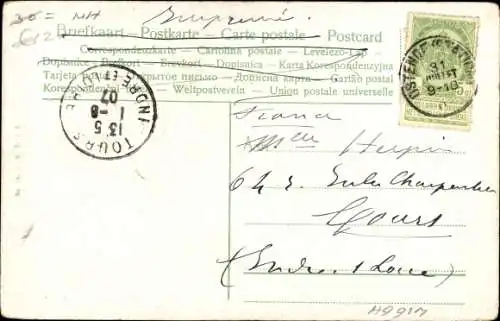 30= MH
Imprimé.
Briefkaart - Postkarte - Carte postale - Postcard
Correspondenzkarte - Cartolina postale - Levelező-Lap
Dopisnice - Brefkort - Brevkort - Dopisnica - Karta Korespondencyjna
Tarjeta Postal - Открытое письмо - Дописна карта - Cartão postal
Korespondenční lístek - Weltpostverein - Union postale universelle
OSTENDE (STATION)
31
JUILLET
9-10
TOURS
13 5
1-8
07
INDRE ET LOIRE
France
Mlle
64
Tours
(Indre & Loire)
H99IM